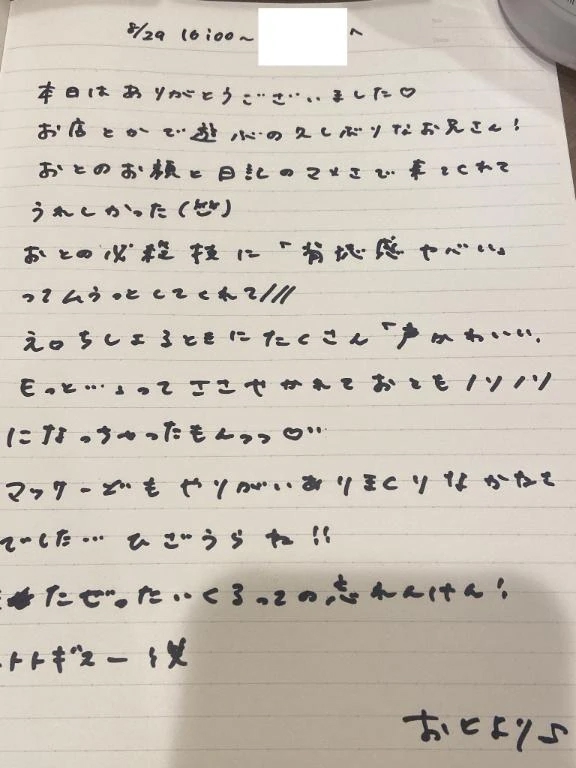 8/29 16:00～ へ
本日はありがとうございました♡
お店とかで遊ぶのひさしぶりなお兄さん!
おとのお顔と日記のマメさで来てくれて
うれしかった(笑)
おとの必殺技に「背徳感ヤベい」
ってムラっとしてくれて///
えロちしてるときにたくさん「声かわいい、
もっと…」ってささやかれておともノリノリ
になっちゃったもんっっ♡
マッサージもやりがいありまくりなかたさ
でした… ひざうらね!!
たぜったいくるっての忘れんけん!
トトギスー
おとより♪